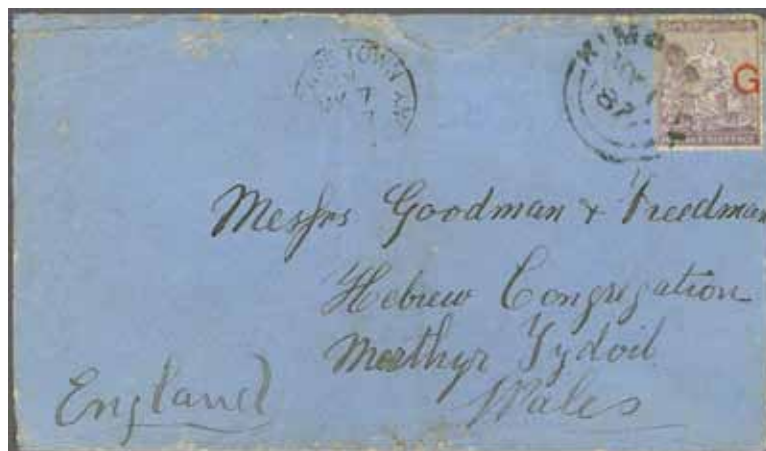 KIMB
87
G
TOWN
7
Messrs Goodman & Freedman
Hebrew Congregation
Merthyr Tydvil
Wales
England